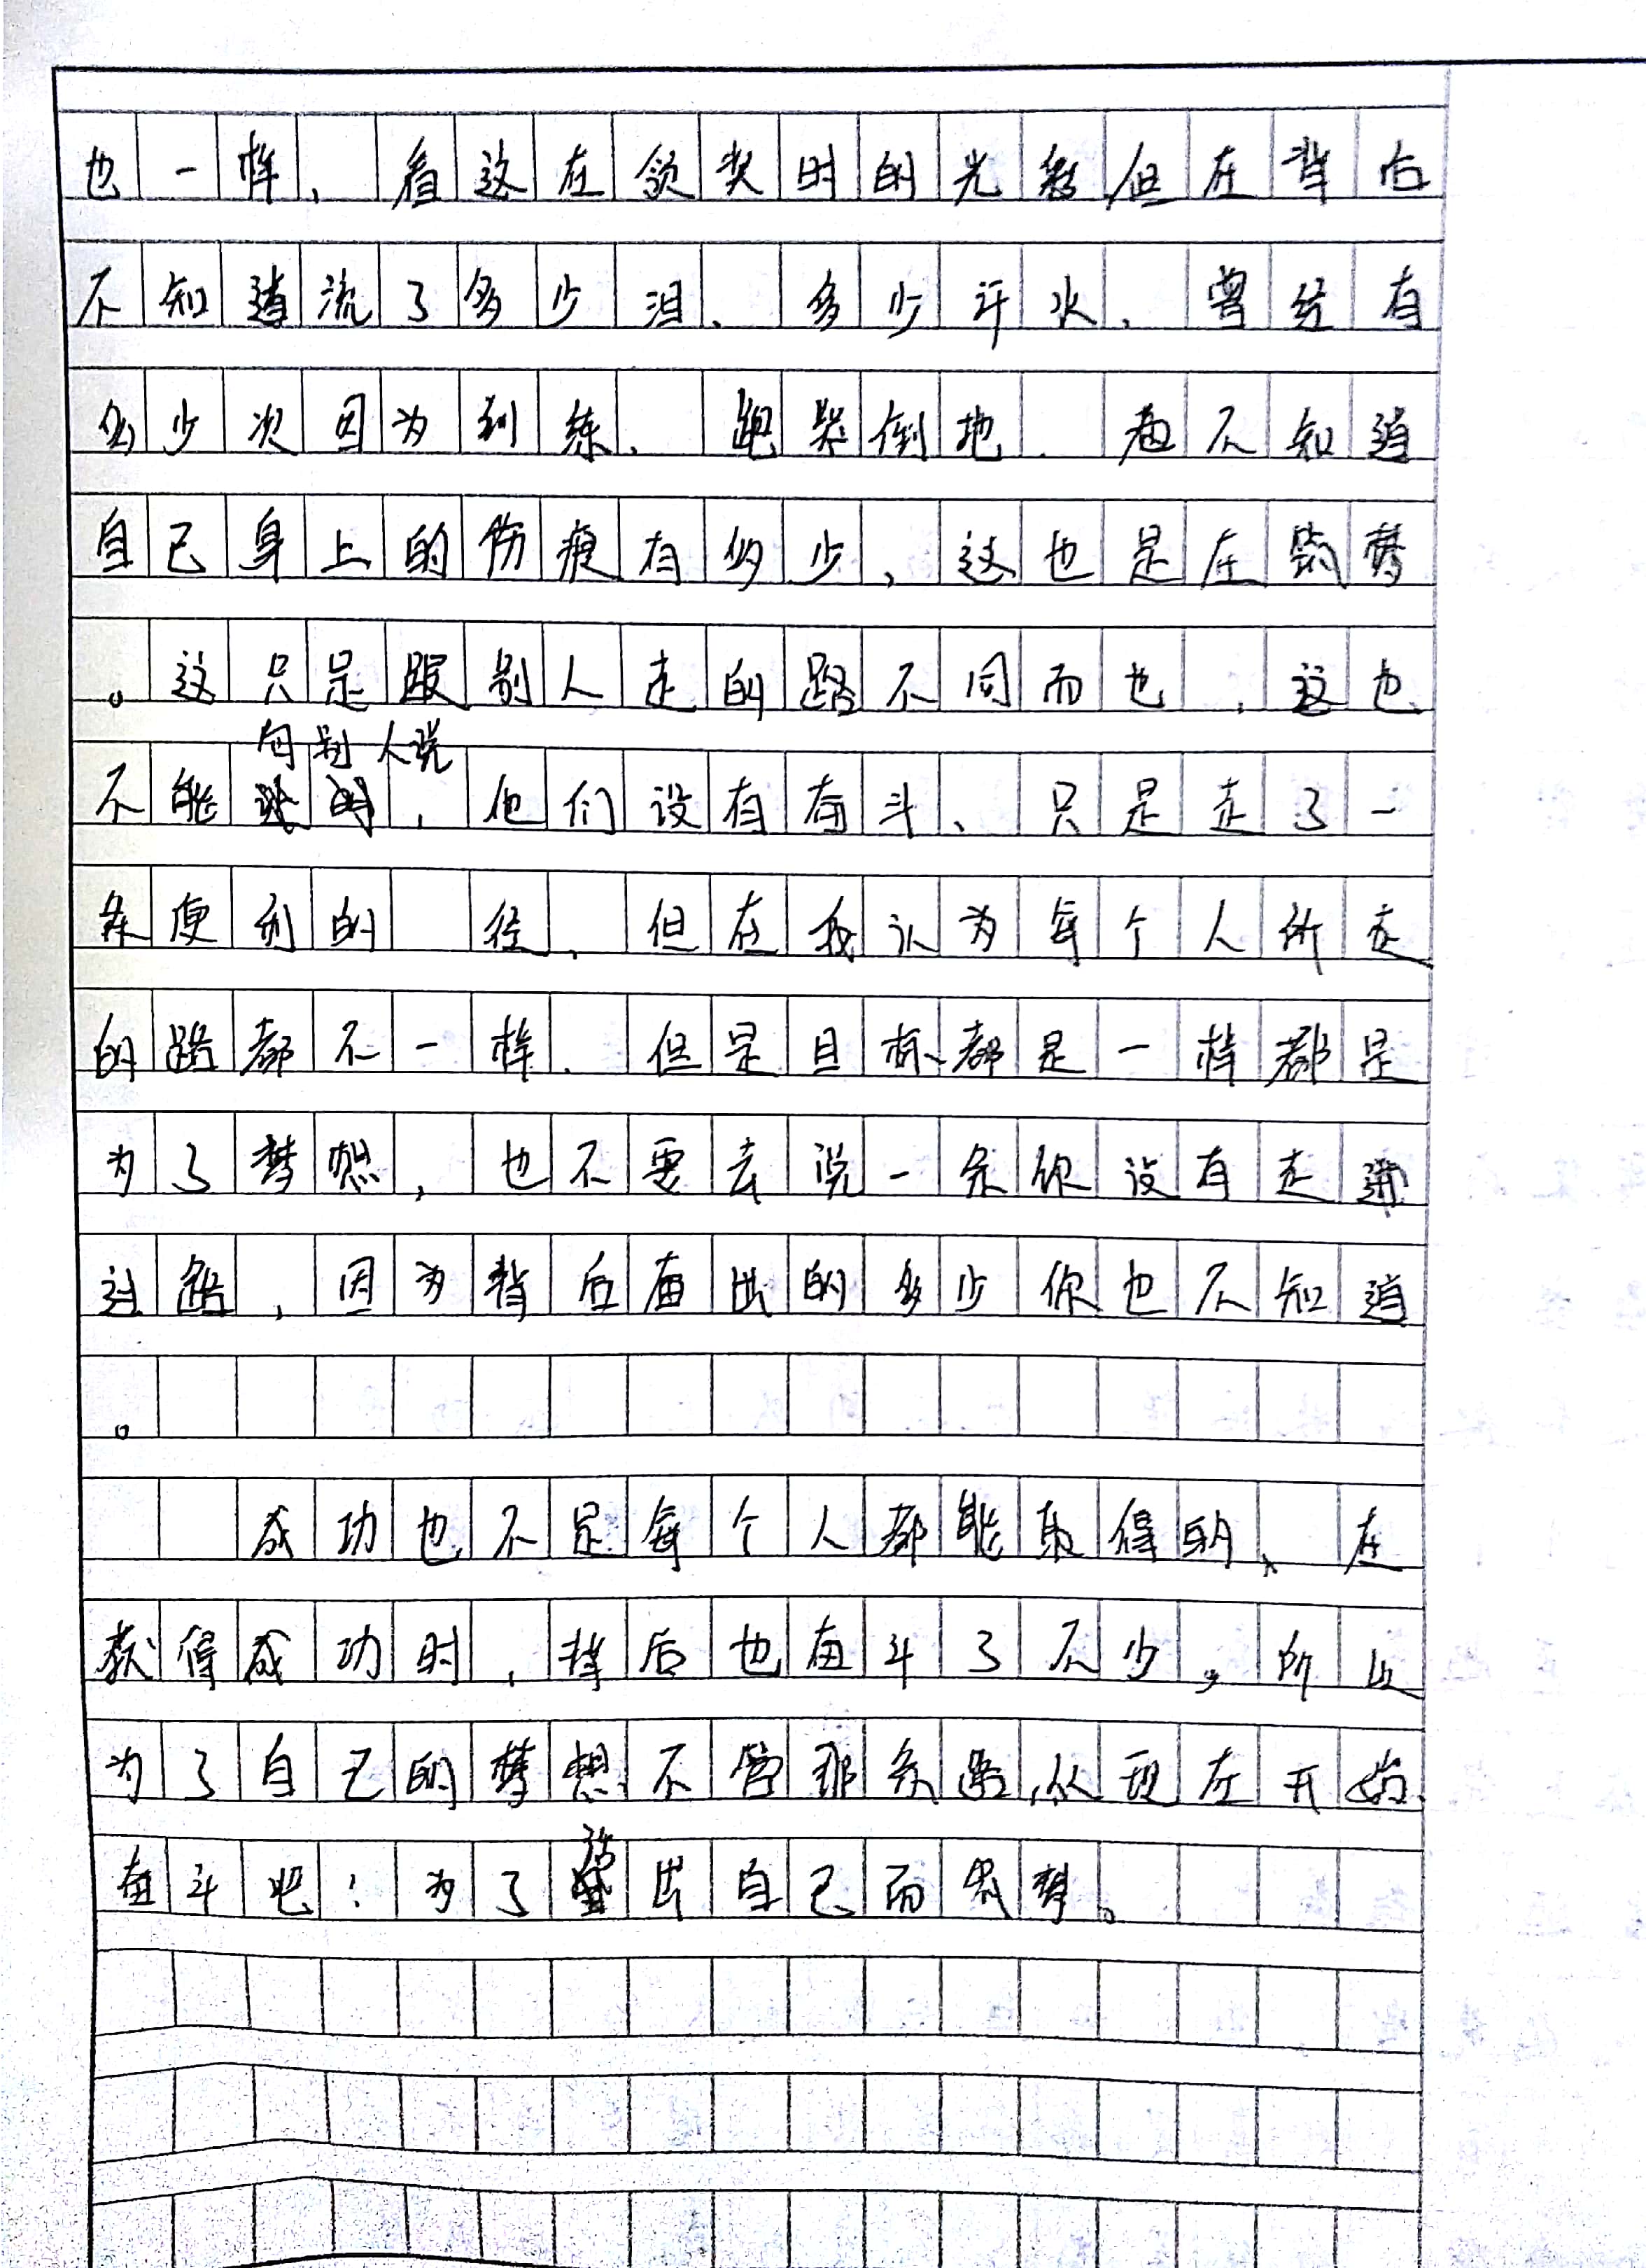 也一样、看这在领奖时的光彩,但在背后
不知道流了多少泪、多少汗水、曾经有
多少次因为训练、跑累倒地、都不知道
自己身上的伤痕有多少,这也是在筑梦
。这只是跟别人走的路不同而也,这也
向别人说
不能,他们没有奋斗、只是走了一
条便利的 径,但在我认为每个人所走
的路都不一样、但是目标都是一样都是
为了梦想,也不要去说一条你没有走
过路,因为背后奋出的多少你也不知道
。
成功也不是每个人都能取得的、在
获得成功时,背后也奋斗了不少,所以
为了自己的梦想、不管那条路,从现在开始
奋斗吧!为了活出自己而筑梦。